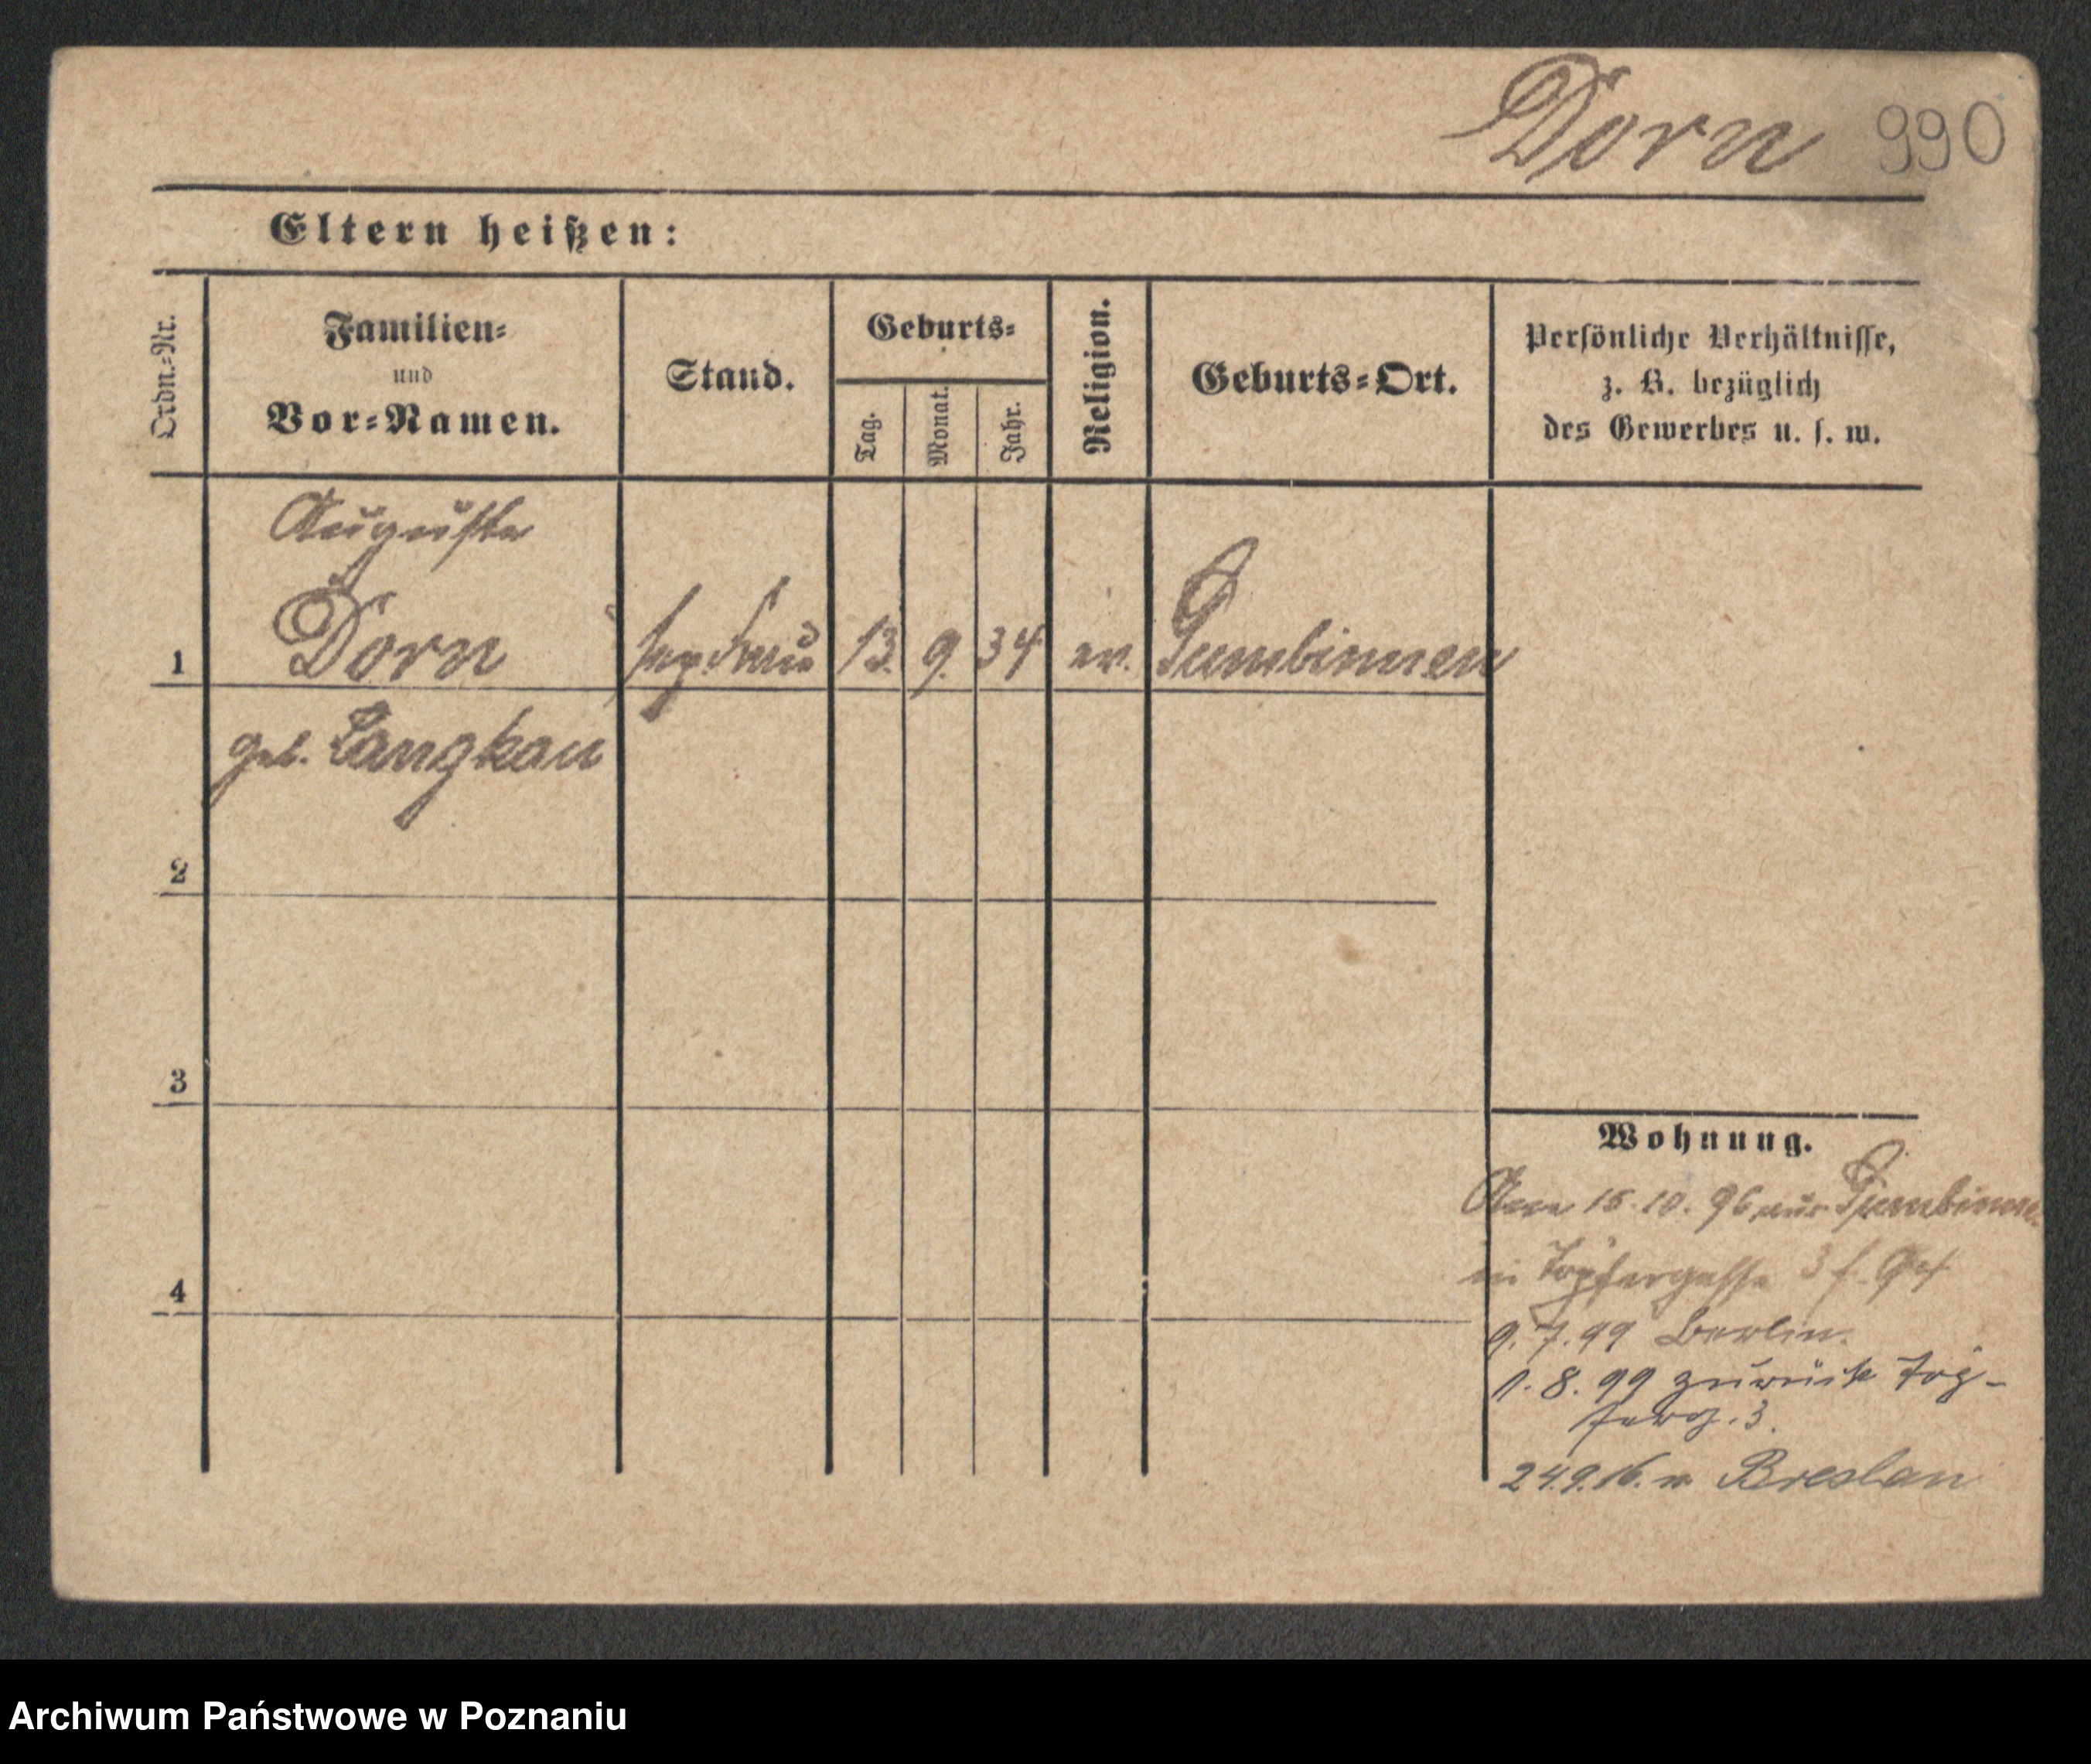 Dorn 990
Eltern heißen:
Ordn.-Nr.
Familien-
und
Vor-Namen.
Stand.
Geburts-
Tag.
Monat.
Jahr.
Religion.
Geburts-Ort.
Persönliche Verhältnisse,
z. B. bezüglich
des Gewerbes u. s. w.
Auguste
1 Dorn 13. 9. 34 ev. Gumbinnen
geb. Langkau
2
3
4
Wohnung.
Am 15.10.96 aus Gumbinnen
in Töpfergasse 3
9.7.99 Berlin.
1.8.99 zurück Töp-
ferg. 3.
24.9.16. n. Breslau
Archiwum Państwowe w Poznaniu